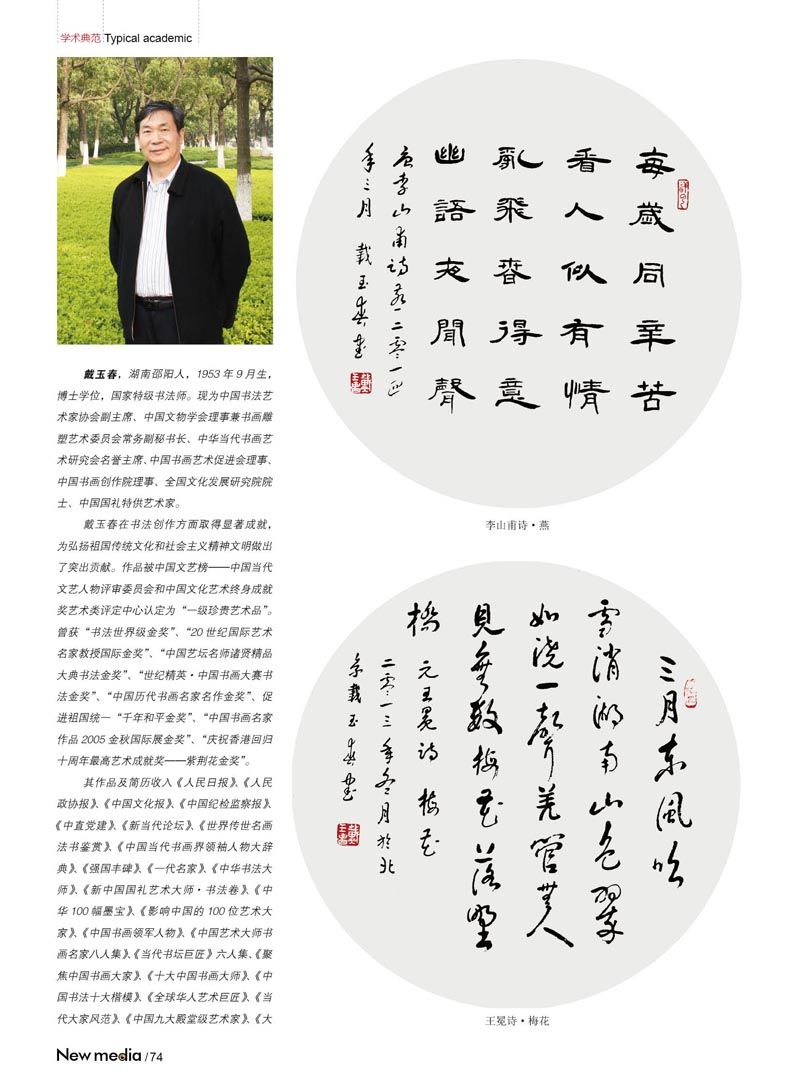 学术典范 Typical academic
戴玉春，湖南邵阳人，1953 年 9 月生，
博士学位，国家特级书法师。现为中国书法艺
术家协会副主席、中国文物学会理事兼书画雕
塑艺术委员会常务副秘书长、中华当代书画艺
术研究会名誉主席、中国书画艺术促进会理事、
中国书画创作院理事、全国文化发展研究院院
士、中国国礼特供艺术家。
戴玉春在书法创作方面取得显著成就，
为弘扬祖国传统文化和社会主义精神文明做出
了突出贡献。作品被中国文艺榜——中国当代
文艺人物评审委员会和中国文化艺术终身成就
奖艺术类评定中心认定为“一级珍贵艺术品”。
曾获“书法世界级金奖”、“20 世纪国际艺术
名家教授国际金奖”、“中国艺坛名师诸贤精品
大典书法金奖”、“世纪精英·中国书画大赛书
法金奖”、“中国历代书画名家名作金奖”、促
进祖国统一“千年和平金奖”、“中国书画名家
作品 2005 金秋国际展金奖”、“庆祝香港回归
十周年最高艺术成就奖——紫荆花金奖”。
其作品及简历收入《人民日报》、《人民
政协报》、《中国文化报》、《中国纪检监察报》、
《中直党建》、《新当代论坛》、《世界传世名画
法书鉴赏》、《中国当代书画界领袖人物大辞
典》、《强国丰碑》、《一代名家》、《中华书法大
师》、《新中国国礼艺术大师·书法卷》、《中
华 100 幅墨宝》、《影响中国的 100 位艺术大
家》、《中国书画领军人物》、《中国艺术大师书
画名家八人集》、《当代书坛巨匠》六人集、《聚
焦中国书画大家》、《十大中国书画大师》、《中
国书法十大楷模》、《全球华人艺术巨匠》、《当
代大家风范》、《中国九大殿堂级艺术家》、《大
每歲同辛苦
看人似有情
亂飛春得意
幽語夜聞聲
唐李山甫詩燕二零一
年三月 戴玉春書
李山甫诗·燕
三月東風吹
雪消湖南山色翠
如澆一聲羌管無人
見無數梅花落野
橋 元王冕詩 梅花
二零一三年冬月於北
京戴玉春書
王冕诗·梅花
New media /74